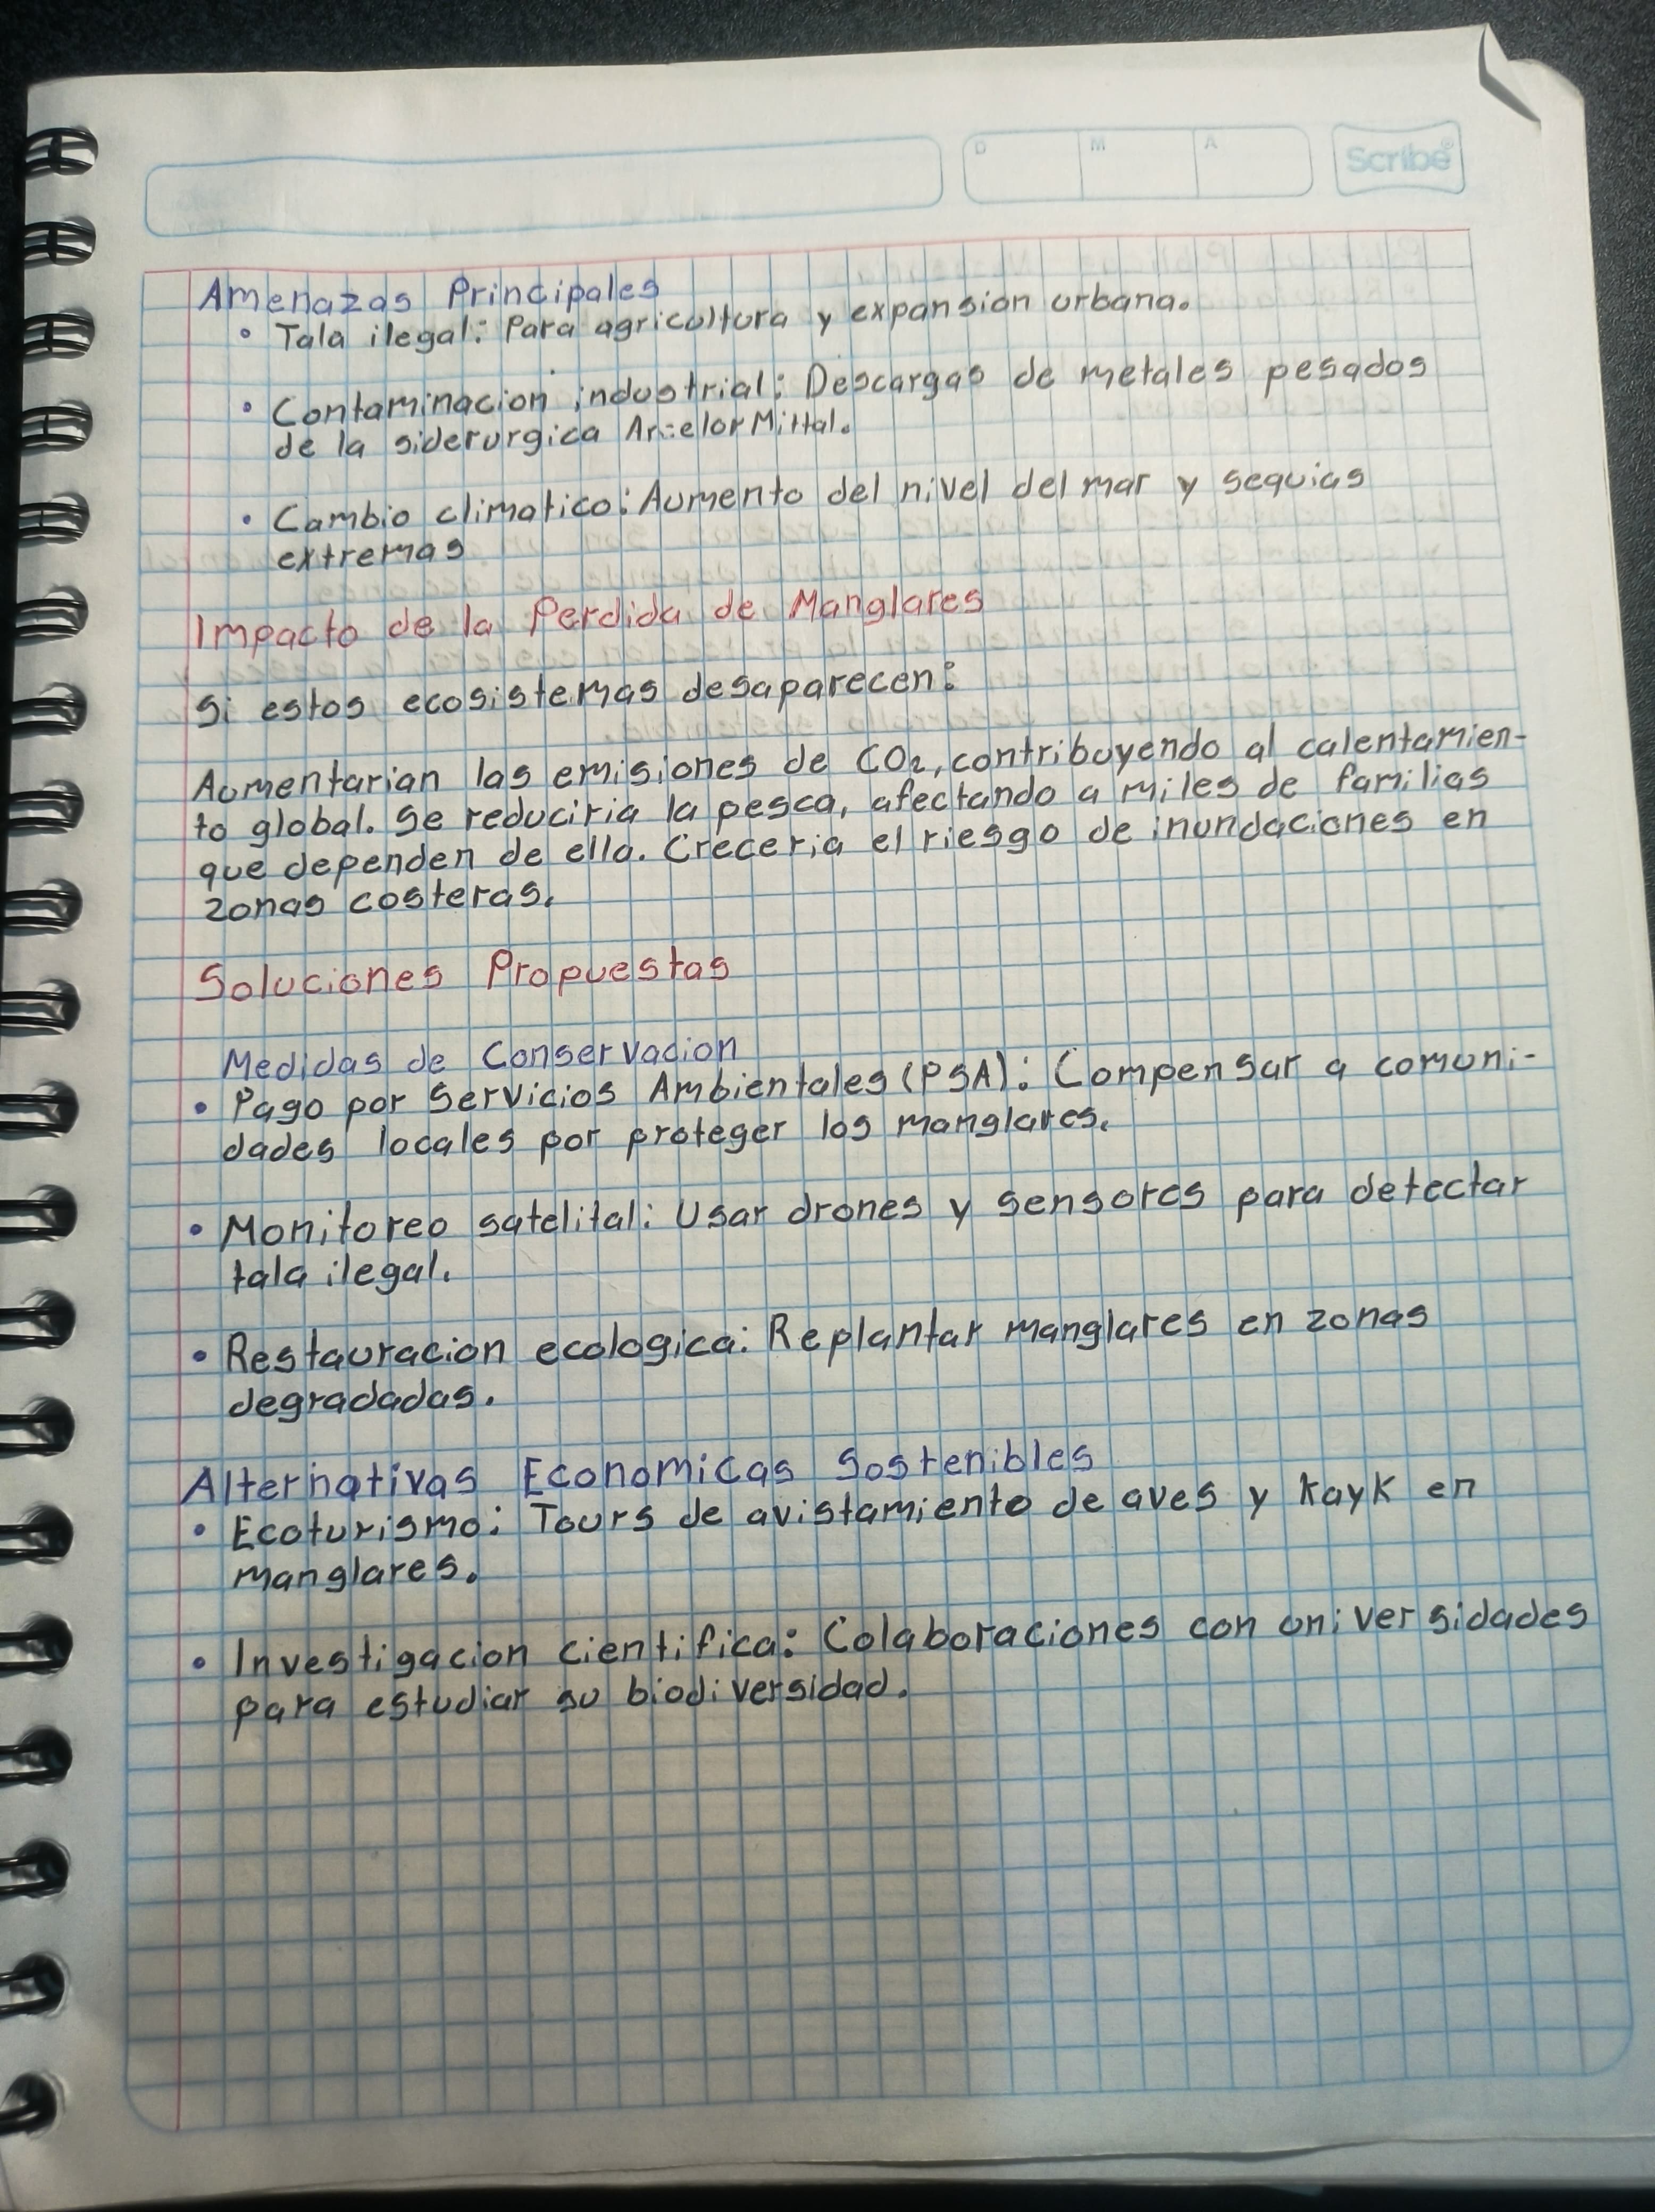 D M A Scribe
Amenazas Principales
• Tala ilegal: Para agricultura y expansion urbana.
• Contaminacion industrial: Descargas de metales pesados
de la siderurgica ArcelorMittal.
• Cambio climatico: Aumento del nivel del mar y sequias
extremas
Impacto de la Perdida de Manglares
Si estos ecosistemas desaparecen:
Aumentarian las emisiones de CO₂, contribuyendo al calentamien-
to global. Se reduciria la pesca, afectando a miles de familias
que dependen de ella. Creceria el riesgo de inundaciones en
zonas costeras.
Soluciones Propuestas
Medidas de Conservacion
• Pago por Servicios Ambientales (PSA): Compensar a comuni-
dades locales por proteger los manglares.
• Monitoreo satelital: Usar drones y sensores para detectar
tala ilegal.
• Restauracion ecologica: Replantar manglares en zonas
degradadas.
Alternativas Economicas Sostenibles
• Ecoturismo: Tours de avistamiento de aves y kayk en
manglares.
• Investigacion cientifica: Colaboraciones con universidades
para estudiar su biodiversidad.